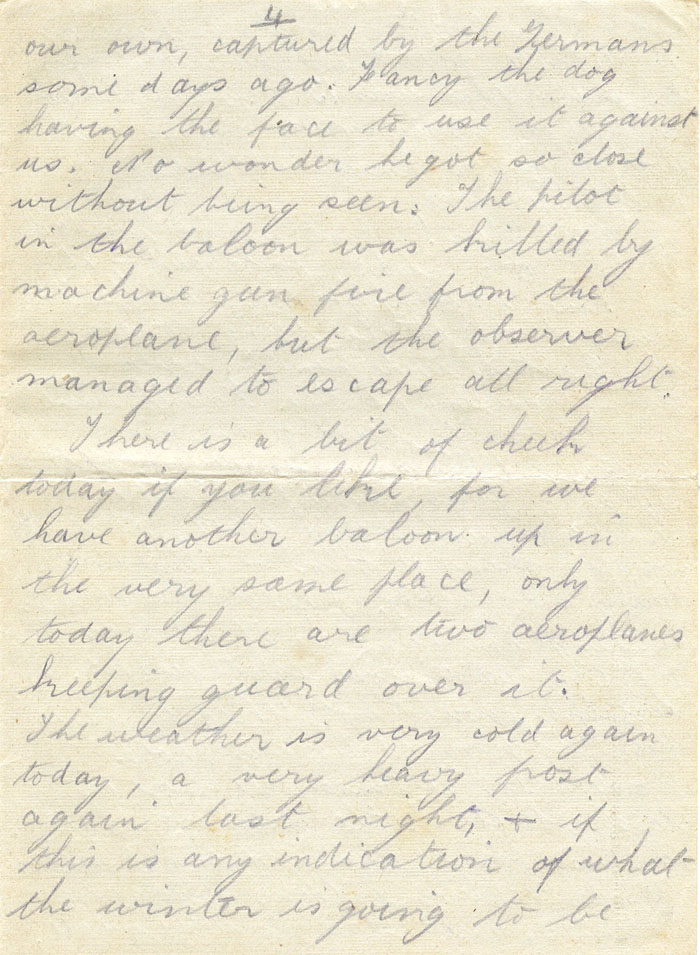 4
our own, captured by the Germans
some days ago. Fancy the dog
having the face to use it against
us. No wonder he got so close
without being seen. The pilot
in the baloon was killed by
machine gun fire from the
aeroplane, but the observer
managed to escape all right.
There is a bit of cheek
today if you like, for we
have another baloon up in
the very same place, only
today there are two aeroplanes
keeping guard over it.
The weather is very cold again
today, a very heavy frost
again last night, + if
this is any indication of what
the winter is going to be